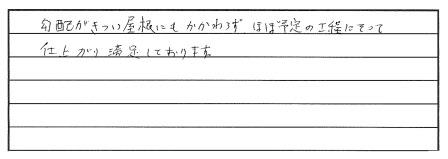 勾配がきつい屋根にもかかわらず、ほぼ予定の工程にそって
仕上がり満足しております。